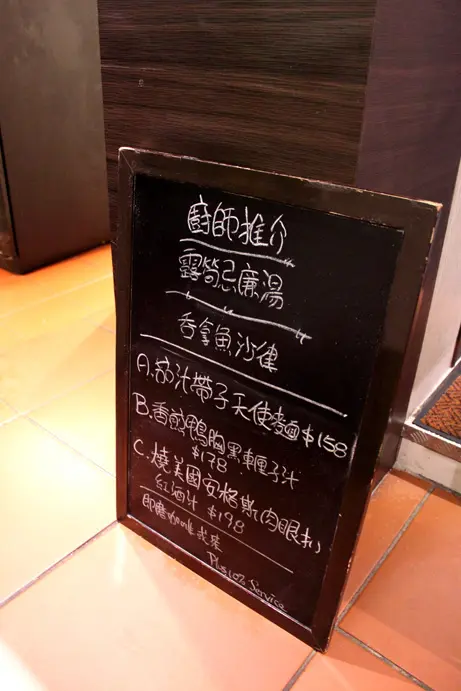 廚師推介
露筍忌廉湯
吞拿魚沙律
A.茄汁帶子天使麵$158
B.香煎鴨胸黑車厘子汁
$178
C.燒美國安格斯肉眼扒
紅酒汁 $198
即磨咖啡或茶
Plus 10% Service